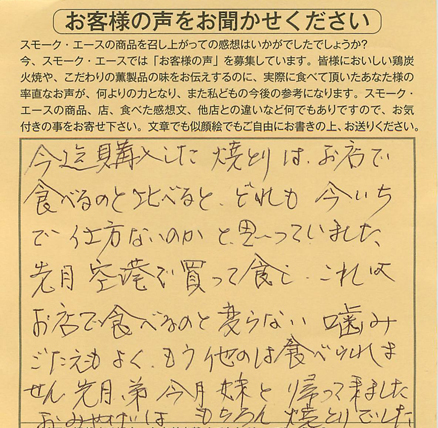 お客様の声をお聞かせください
スモーク・エースの商品を召し上がっての感想はいかがでしたでしょうか?
今、スモーク・エースでは「お客様の声」を募集しています。皆様においしい鶏炭
火焼や、こだわりの薫製品の味をお伝えするのに、実際に食べて頂いたあなた様の
率直なお声が、何よりの力となり、また私どもの今後の参考になります。スモーク・
エースの商品、店、食べた感想文、他店との違いなど何でもありですので、お気
付きの事をお寄せ下さい。文章でも似顔絵でもご自由にお書きの上、お送りください。
今迄購入した焼とりは、お店で
食べるのと比べると、どれも今いち
で仕方ないのかと思っていました、
先月空港で買って食し、これは
お店で食べるのと変らない噛み
ごたえもよく、もう他のは食べられま
せん先月、弟今月妹と帰って来ました
おみやげはもちろん焼とりでした